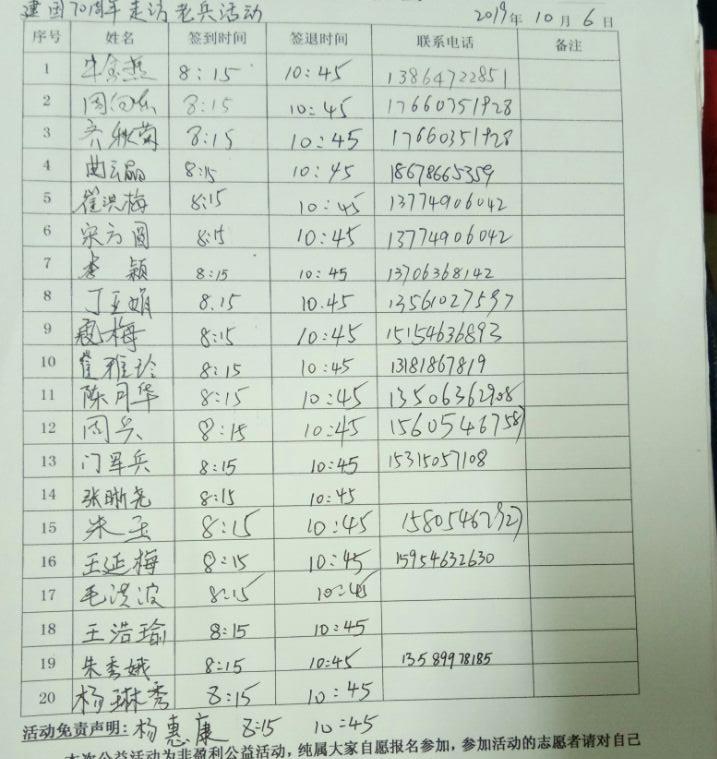 建国70周年走访老兵活动 2019年10月6日
序号 姓名 签到时间 签退时间 联系电话 备注
1 8:15 10:45 13864722851
2 8:15 10:45 17660351928
3 齐秋菊 8:15 10:45 17660351928
4 曲云晶 8:15 10:45 18678665359
5 崔洪梅 8:15 10:45 13774906042
6 宋方圆 8:15 10:45 13774906042
7 李颖 8:15 10:45 13706368142
8 丁亚娟 8.15 10.45 13561027597
9 寇梅 8:15 10:45 15154636893
10 崔雅玲 8:15 10:45 13181867819
11 陈月华 8:15 10:45 13506362908
12 周兵 8:15 10:45 15605467587
13 门军兵 8:15 10:45 15315057108
14 张晰尧 8:15 10:45
15 朱玉 8:15 10:45
16 王延梅 8:15 10:45 15954632630
17 毛洪波 8:15 10:45
18 王浩瑜 8:15 10:45
19 朱秀娥 8:15 10:45 13589978185
20 杨琳秀 8:15 10:45
活动免责声明: 杨惠康 8:15 10:45
本次公益活动为非盈利公益活动,纯属大家自愿报名参加,参加活动的志愿者请对自己